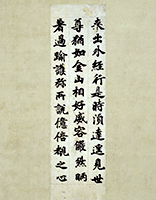 來出外經行是時須達遥見世
尊猶如金山相好威容儼然昞
著過踰護弥所說億倍覩之心